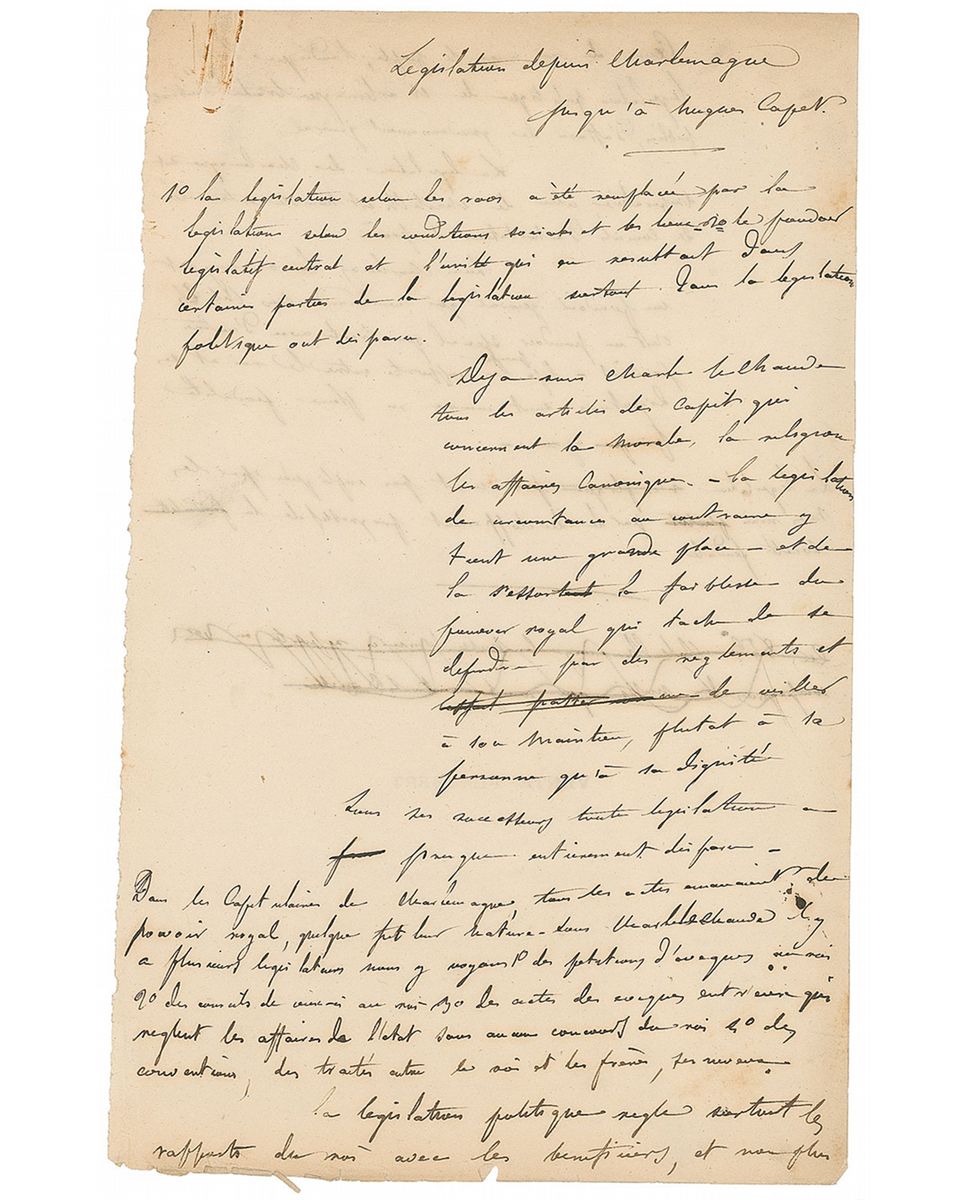 Legislation depuis Charlemagne
jusqu'à Hugues Capet.
1º la legislation selon les races a été remplacée par la
legislation selon les conditions sociales et les lieux 2º le pouvoir
législatif central et l'unité qui en resultait dans
certaines parties de la legislation surtout dans la legislation
politique ont disparu.
Deja sous Charle le Chauve
tous les articles des Capit qui
concernent la morale, la religion
les affaires canonique - la legislation
de circonstances au contraire y
tient une grande place - et de
la la faiblesse du
pouvoir royal qui tache de se
defendre par des reglements et
de veiller
à son maintien, plutot à sa
personne qu'à sa dignité
Sous ses successeurs toute legislation a
presque entierement disparu -
Dans les Capitulaires de Charlemagne, tous les actes emanaient du
pouvoir royal, quelque fut leur nature - sous Charle le Chauve il y
a plusieurs legislateurs nous y voyons 1º des petitions d'eveques au roi
2º des conseils de au roi 3º des actes des eveques entr'eux qui
reglent les affaires de l'etat sans aucun concours du roi 4º des
conventions, des traités entre le roi et les frères, ses neveux
la legislation politique regle surtout les
rapports du roi avec les beneficiers, et non plus